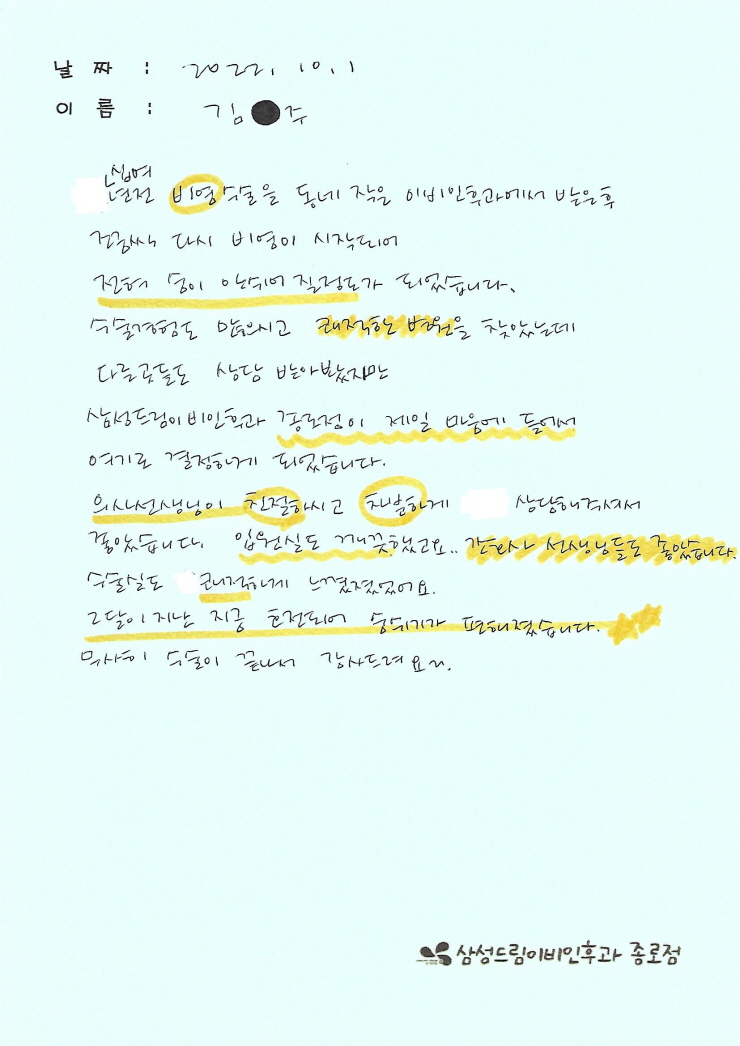 날 짜 : 2022. 10. 1
이 름 : 김 주
십여
년전 비염수술을 동네 작은 이비인후과에서 받은후
조금씩 다시 비염이 시작되어
전혀 숨이 안쉬어 질정도가 되었습니다.
수술경험도 많으시고 쾌적한 병원을 찾았는데
다른곳들도 상담 받아봤지만
삼성드림이비인후과 종로점이 제일 마음에 들어서
여기로 결정하게 되었습니다.
의사선생님이 친절하시고 차분하게 상담해주셔서
좋았습니다. 입원실도 깨끗했고요.. 간호사 선생님들도 좋았습니다.
수술실도 쾌적하게 느껴졌었어요.
2달이 지난 지금 호전되어 숨쉬기가 편해졌습니다.
무사히 수술이 끝나서 감사드려요~.
삼성드림이비인후과 종로점